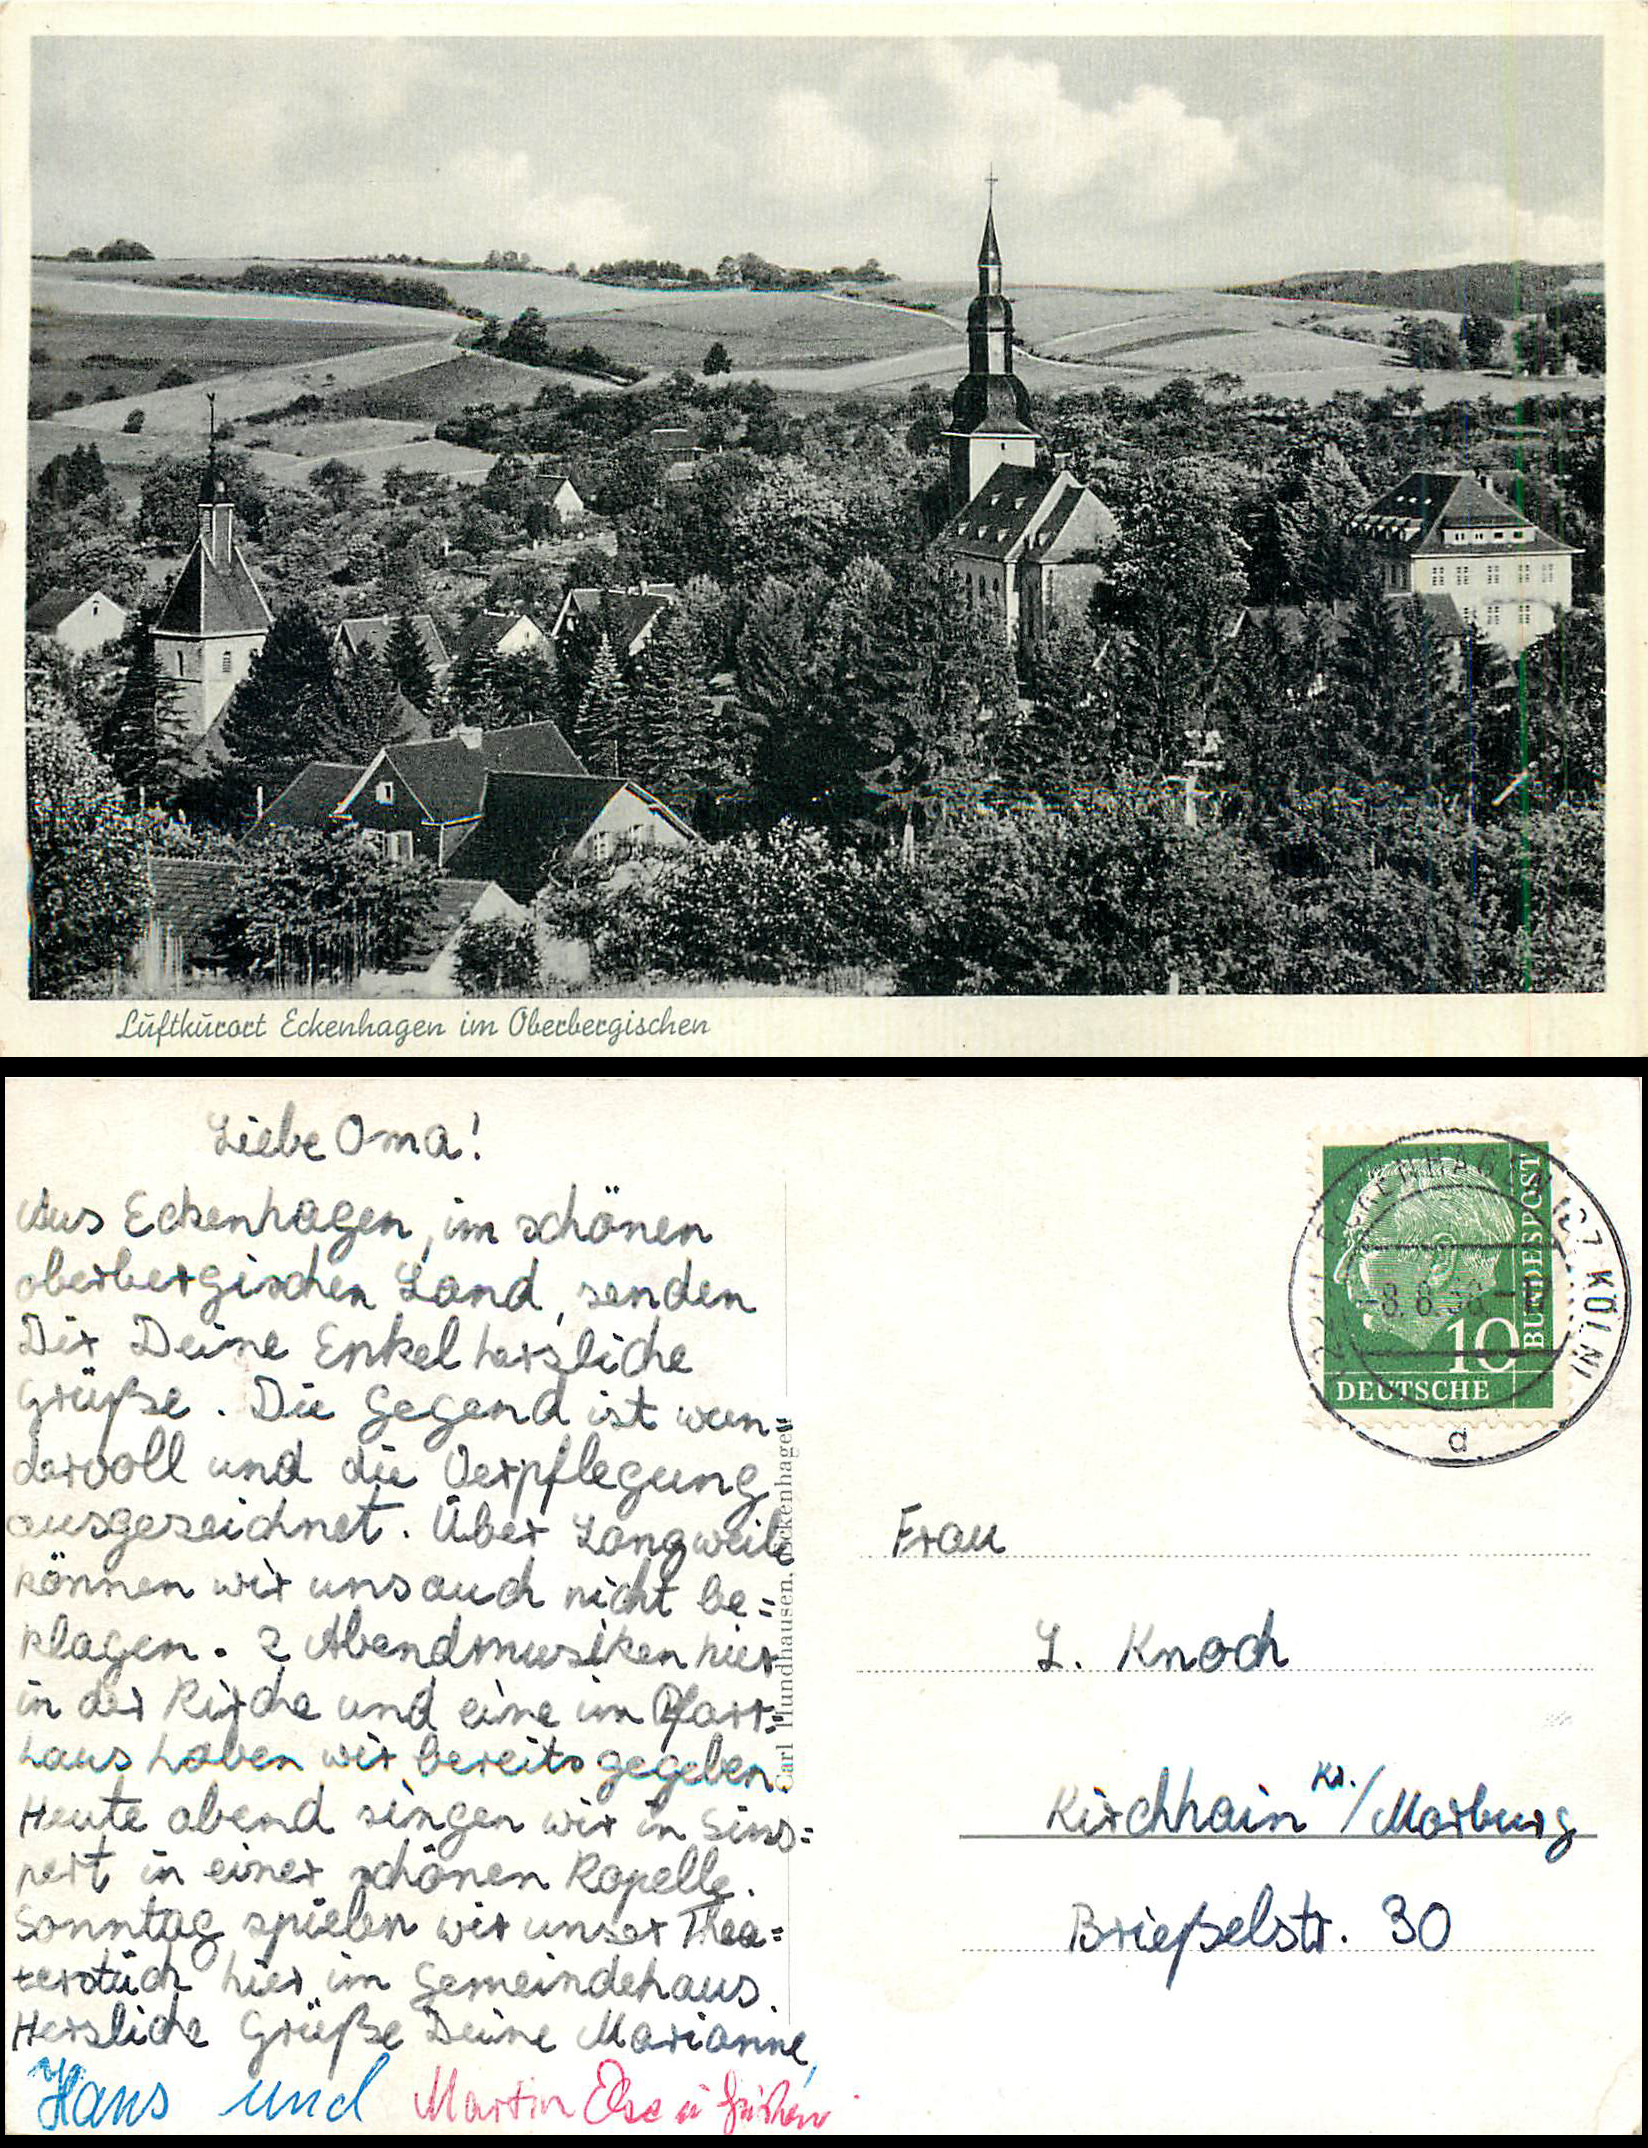 Luftkurort Eckenhagen im Oberbergischen
Liebe Oma!
Aus Eckenhagen, im schönen
oberbergischen Land, senden
Dir Deine Enkel herzliche
Grüße. Die Gegend ist wun=
dervoll und die Verpflegung
ausgezeichnet. Über Langweile
können wir uns auch nicht be=
klagen. 2 Abendmusiken hier
in der Kirche und eine im Pfarr=
haus haben wir bereits gegeben.
Heute abend singen wir in Sins=
pert in einer schönen Kapelle.
Sonntag spielen wir unser Thea=
terstück hier im Gemeindehaus.
Herzliche Grüße Deine Marianne,
Hans und Martin Else u
Carl Hundhausen, Eckenhagen
ECKENHAGEN KÖLN
-8.8.
a
10
DEUTSCHE
BUNDESPOST
Frau
L. Knoch
Kirchhain Kr./Marburg
Brießelstr. 30